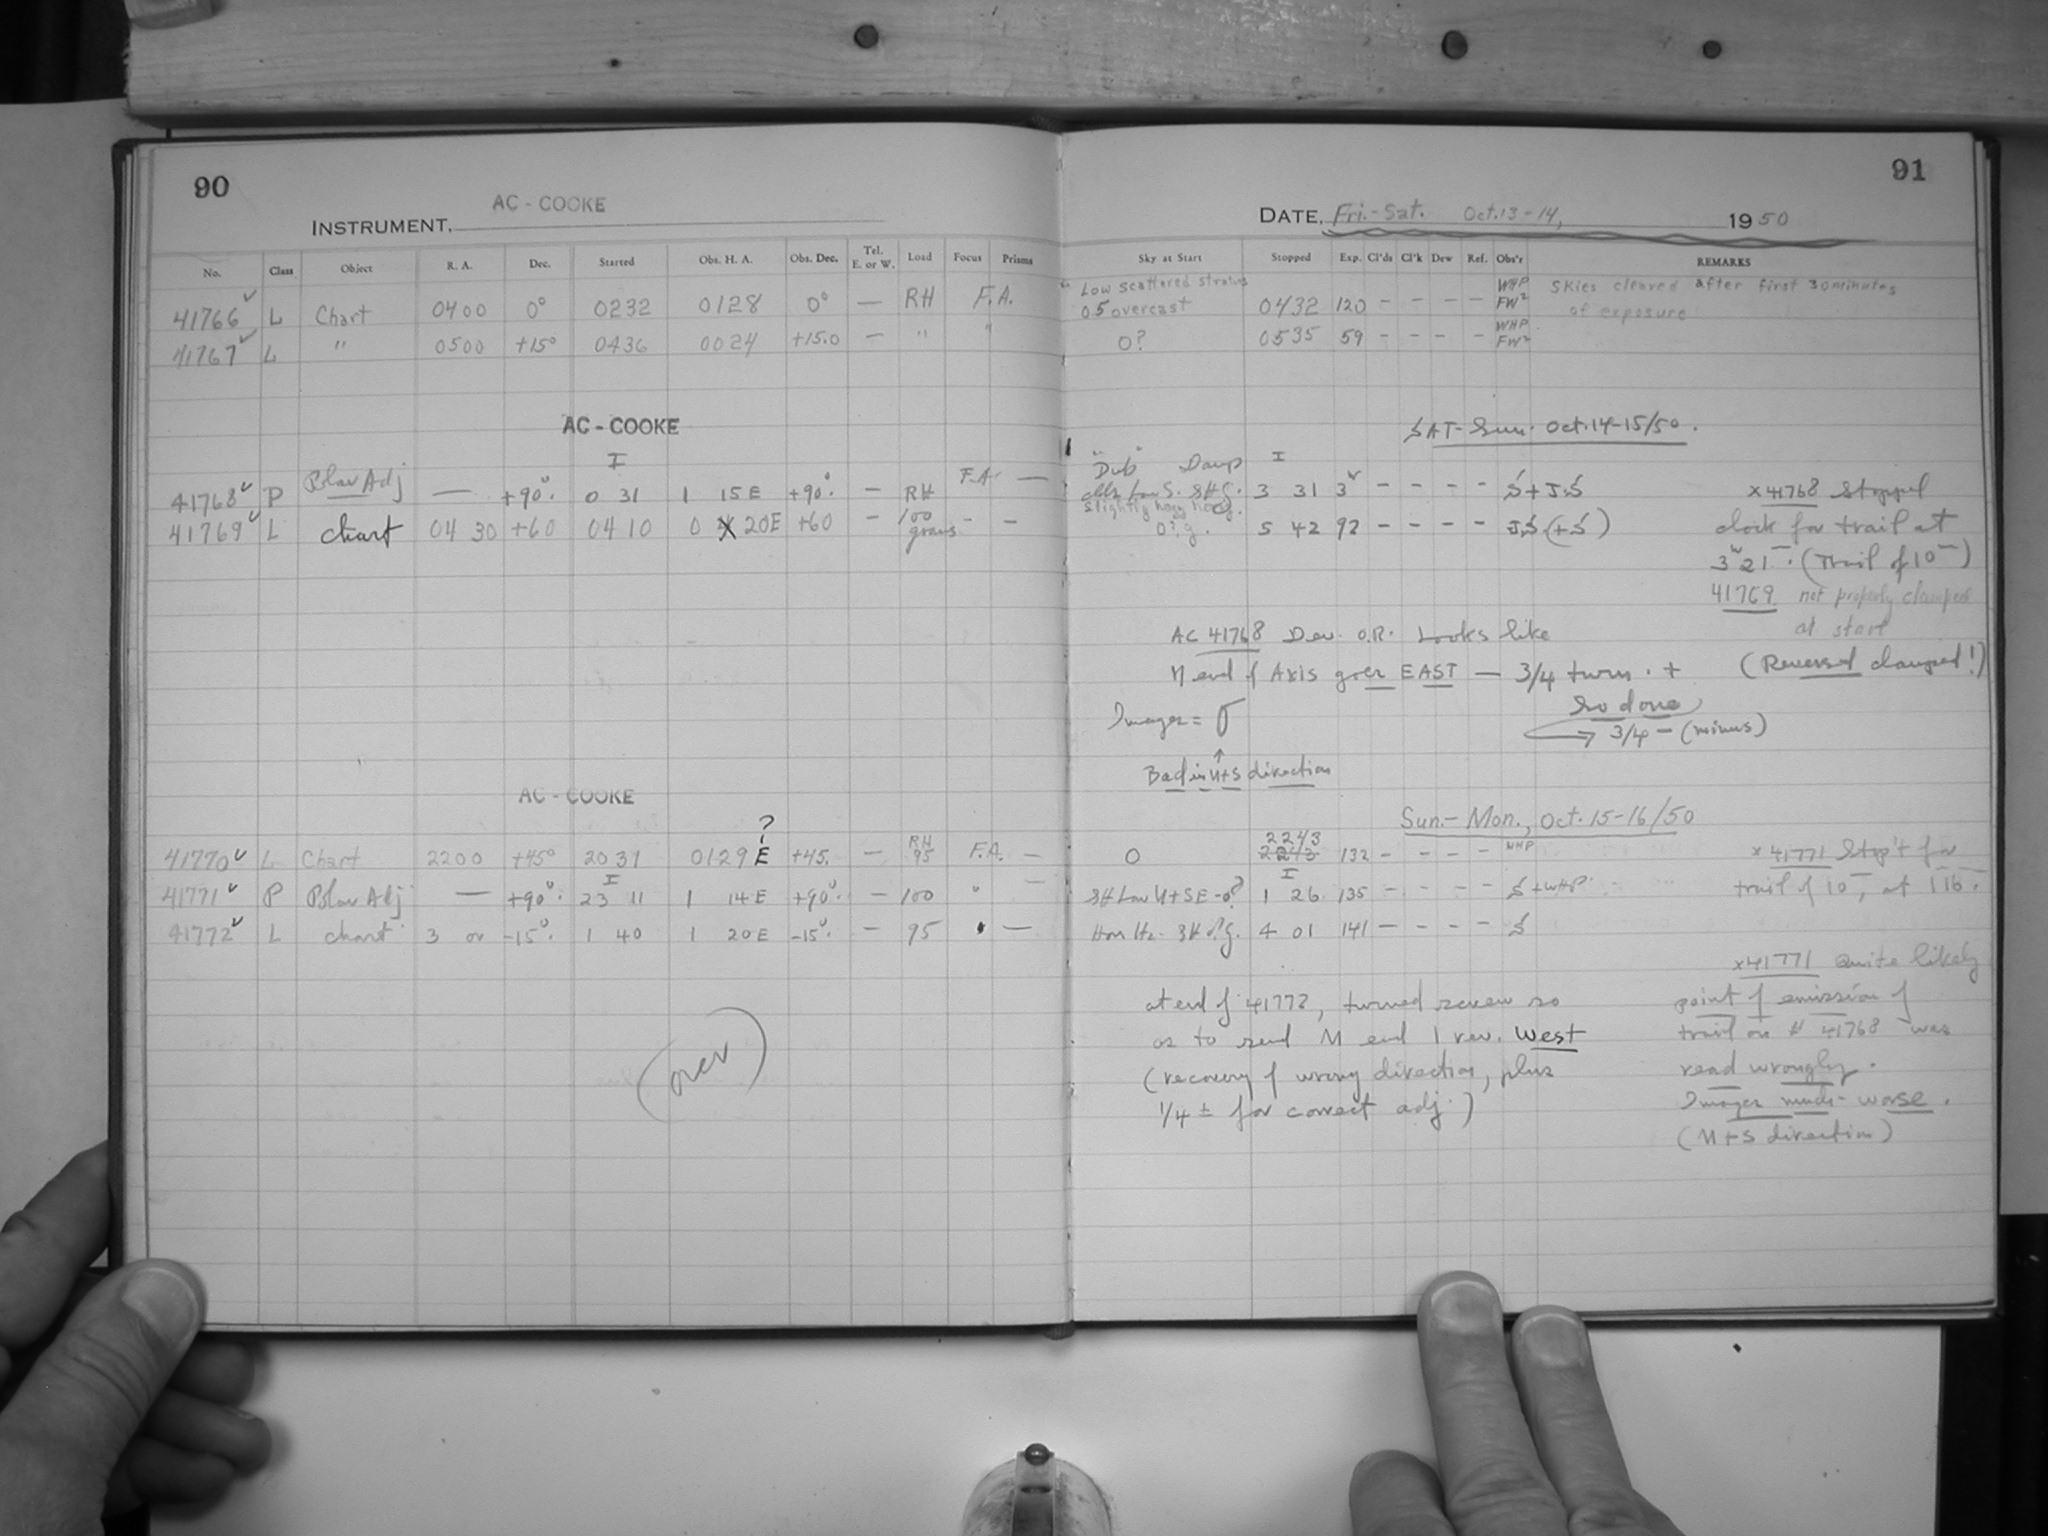 90
AC - COOKE
INSTRUMENT,
No. Class Object R. A. Dec. Started Obs. H. A. Obs. Dec. Tel. E. or W. Load Focus Prisms
41766 L Chart 0400 0° 0232 0128 0° — RH F.A.
41767 L " 0500 +15° 0436 0024 +15.0 — " "
AC - COOKE
I
41768 P Polar Adj — +90°. 0 31 1 15 E +90°. — RH F.A. —
41769 L chart 04 30 +60 04 10 0 20E +60 — 100 grams - —
AC - COOKE
?
41770 L Chart 2200 +45° 2031 0129 E +45. — RH 95 F.A. —
I
41771 P Polar Adj — +90°. 23 11 1 14 E +90°. — 100 " —
41772 L chart 3 00 -15°. 1 40 1 20 E -15°. — 95 —
(over)
91
DATE, Fri.-Sat. Oct. 13-14, 1950
Sky at Start Stopped Exp. Cl'ds Cl'k Dew Ref. Obs'r REMARKS
Low scattered stratus
05 overcast 0432 120 - - - - WHP FW² Skies cleared after first 30 minutes
of exposure
0? 0535 59 - - - - WHP FW²
SAT- Sun. Oct. 14-15/50.
I
3 31 3 - - - - S + J.S x 41768 Stopped
0? g. 5 42 92 - - - - J.S. (+S) clock for trail at
3 21. (Trail of 10)
41769 not properly clamped
at start
AC 41768 Dev. O.R. Looks like
N end of Axis goes EAST — 3/4 turn. + (Reversed clamped!)
So done
Images =
3/4 - (minus)
Bad in N+S direction
Sun.- Mon., Oct. 15-16/50
2243
0 2243 132 - - - - WHP x 41771 Stop't for
I
SH Low N+SE-0? 1 26 135 - - - - S + WHP trail of 10, at 1 16.
Hor Hz- SH 0? g. 4 01 141 - - - - S
x41771 Quite likely
point of emission of
trail on # 41768 was
read wrongly.
Images much worse.
(N+S direction)
at end of 41772, turned screw so
as to send N end 1 rev. West
(recovery of wrong direction, plus
1/4 ± for correct adj.)